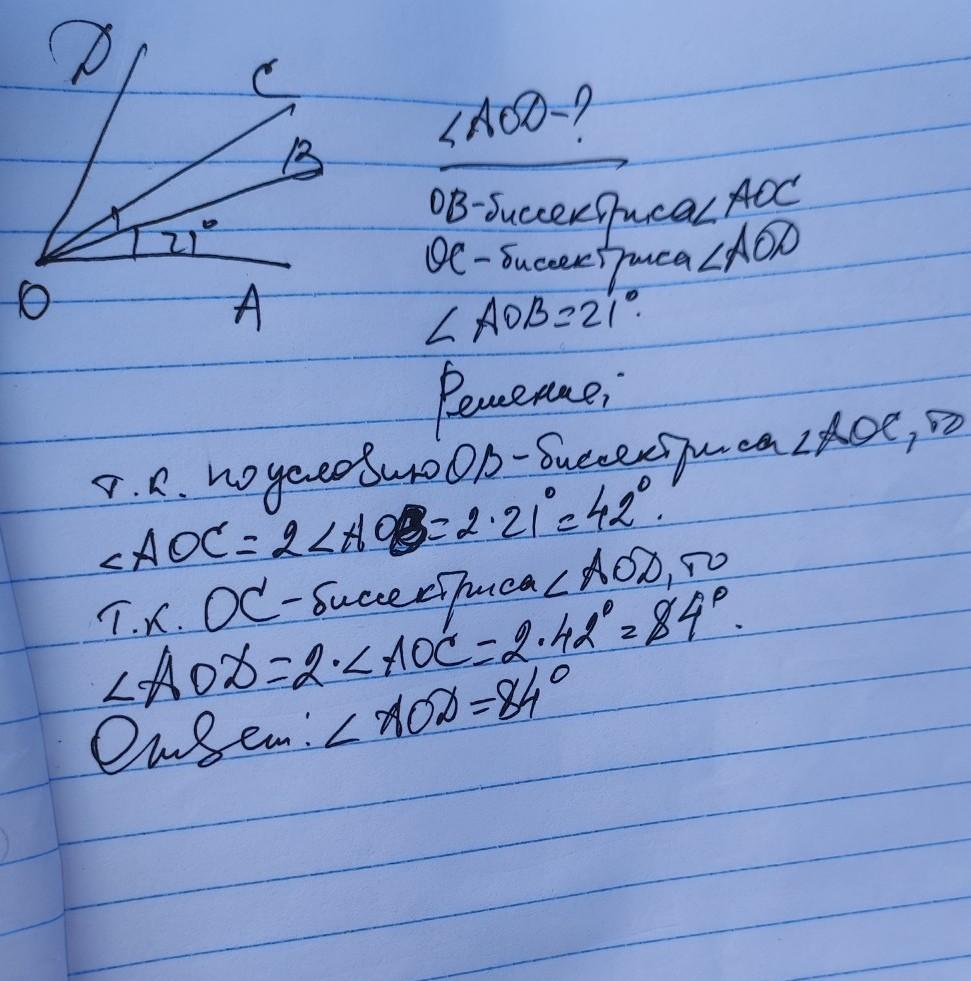 D
C
B
21°
O
A
∠AOD-?
OB-биссектриса∠AOC
OC-биссектриса∠AOD
∠AOB=21°.
Решение;
т.к. по условию OB-биссектриса∠AOC, то
∠AOC=2∠AOB=2·21°=42°.
Т.к. OC-биссектриса∠AOD, то
∠AOD=2·∠AOC=2·42°=84°.
Ответ: ∠AOD=84°